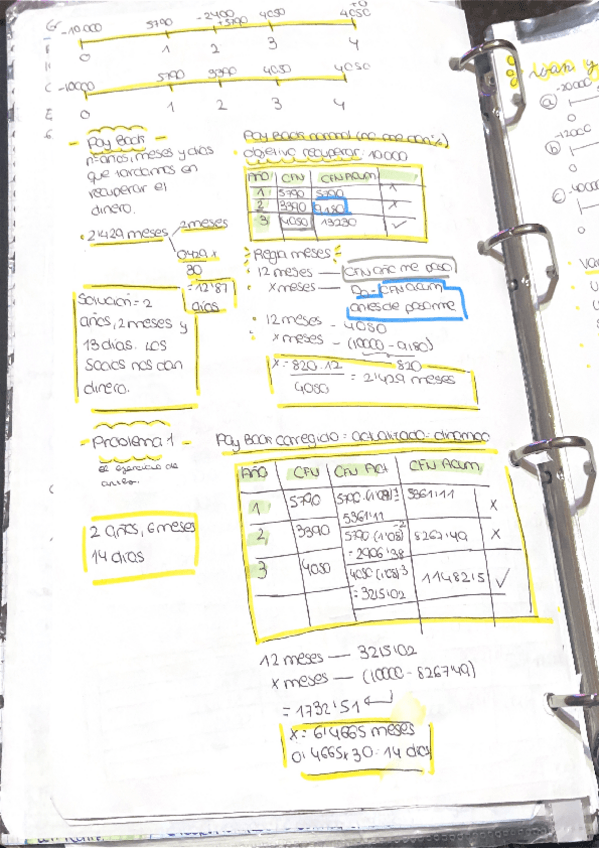 -10.000 5790 -2400 4050 4050
+5790
0 1 2 3 4
-10000 5790 3390 4050 4050
0 1 2 3 4
- Pay Back -
nºaños, meses y días
que tardamos en
recuperar el
dinero.
2'429 meses
2 meses
0'429 x
30
= 12'87
días
Solución = 2
años, 2 meses y
13 días. Los
Socios nos dan
dinero.
Pay Back normal
objetivo recuperar: 10.000
AÑO CFN CFN ACUM
1 5790 5790 x
2 3390 9.180 x
3 4050 13230 ✓
Regla meses
12 meses — CFN año me paso
x meses — CFN acum
antes de pasarme
12 meses - 4050
x meses - (10000 - 9.180)
820
x = 820 · 12 / 4050 = 2'429 meses
- Problema 1 -
El ejercicio de
antes.
2 años, 6 meses
14 días
Pay Back corregido = actualizado = dinámico
AÑO CFN CFN Act CFN ACUM
1 5790 5790 · (1'08)⁻¹ 5361'11 x
5361'11
2 3390 5790 (1'08)⁻² 8267'49 x
= 2906'38
3 4050 4050 · (1'08)⁻³ 11482'5 ✓
= 3215'02
12 meses — 3215'02
x meses — (10000 - 8267'49)
= 1732'51
x = 6'4665 meses
0'4665 x 30 = 14 días
-20000
a
0
-12000
b
0
c
0